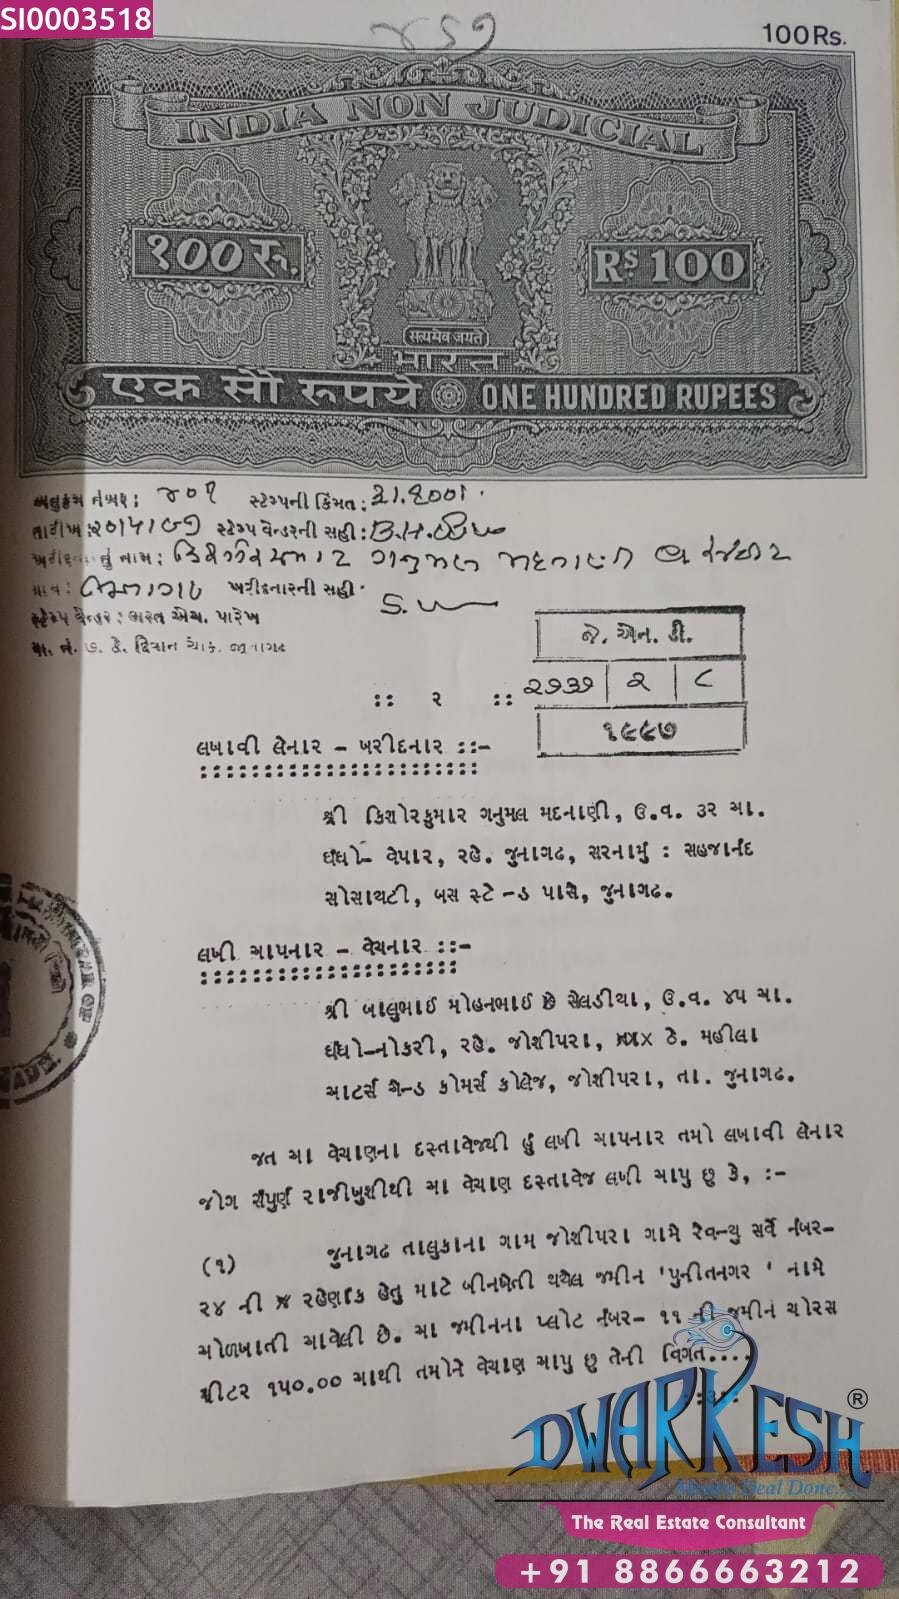 SI0003518
૪૬૭
100Rs.
INDIA NON JUDICIAL
१००रु. Rs 100
सत्यमेव जयते
भारत
एक सौ रुपये ONE HUNDRED RUPEES
અનુક્રમ નંબર: ૪૦૧ સ્ટેમ્પની કિંમત:
તારીખ: સ્ટેમ્પ વેન્ડરની સહી:
નામ: ગનુમલ મદનાણી
ગામ: જુનાગઢ ખરીદનારની સહી
સ્ટેમ્પ વેન્ડર: ભરત એચ. પારેખ
જુનાગઢ
જે. એન. ડી.
૨૭૩૧ ૨ ૮
૧૯૯૭
:: ૨ ::
લખાવી લેનાર - ખરીદનાર ::-
શ્રી કિશોરકુમાર ગનુમલ મદનાણી, ઉ.વ. ૩૨ આ.
ધંધો- વેપાર, રહે. જુનાગઢ, સરનામું : સહજાનંદ
સોસાયટી, બસ સ્ટેન્ડ પાસે, જુનાગઢ.
લખી આપનાર - વેચનાર ::-
શ્રી બાલુભાઈ મોહનભાઈ સેલડીયા, ઉ.વ. ૪૫ આ.
ધંધો-નોકરી, રહે. જોશીપરા, ઠે. મહીલા
આર્ટસ એન્ડ કોમર્સ કોલેજ, જોશીપરા, તા. જુનાગઢ.
જત આ વેચાણના દસ્તાવેજથી હું લખી આપનાર તમો લખાવી લેનાર
જોગ સંપુર્ણ રાજીખુશીથી આ વેચાણ દસ્તાવેજ લખી આપુ છુ કે, :-
(૧) જુનાગઢ તાલુકાના ગામ જોશીપરા ગામે રેવન્યુ સર્વે નંબર-
૨૪ ની રહેણાંક હેતુ માટે બીનખેતી થયેલ જમીન 'પુનીતનગર ' નામે
ઓળખાતી આવેલી છે. આ જમીનના પ્લોટ નંબર- ૧૧ ની જમીન ચોરસ
મીટર ૧૫૦.૦૦ આથી તમોને વેચાણ આપુ છુ તેની વિગત....
::૩::
DWARKESH ®
Deal Done...
The Real Estate Consultant
+91 8866663212